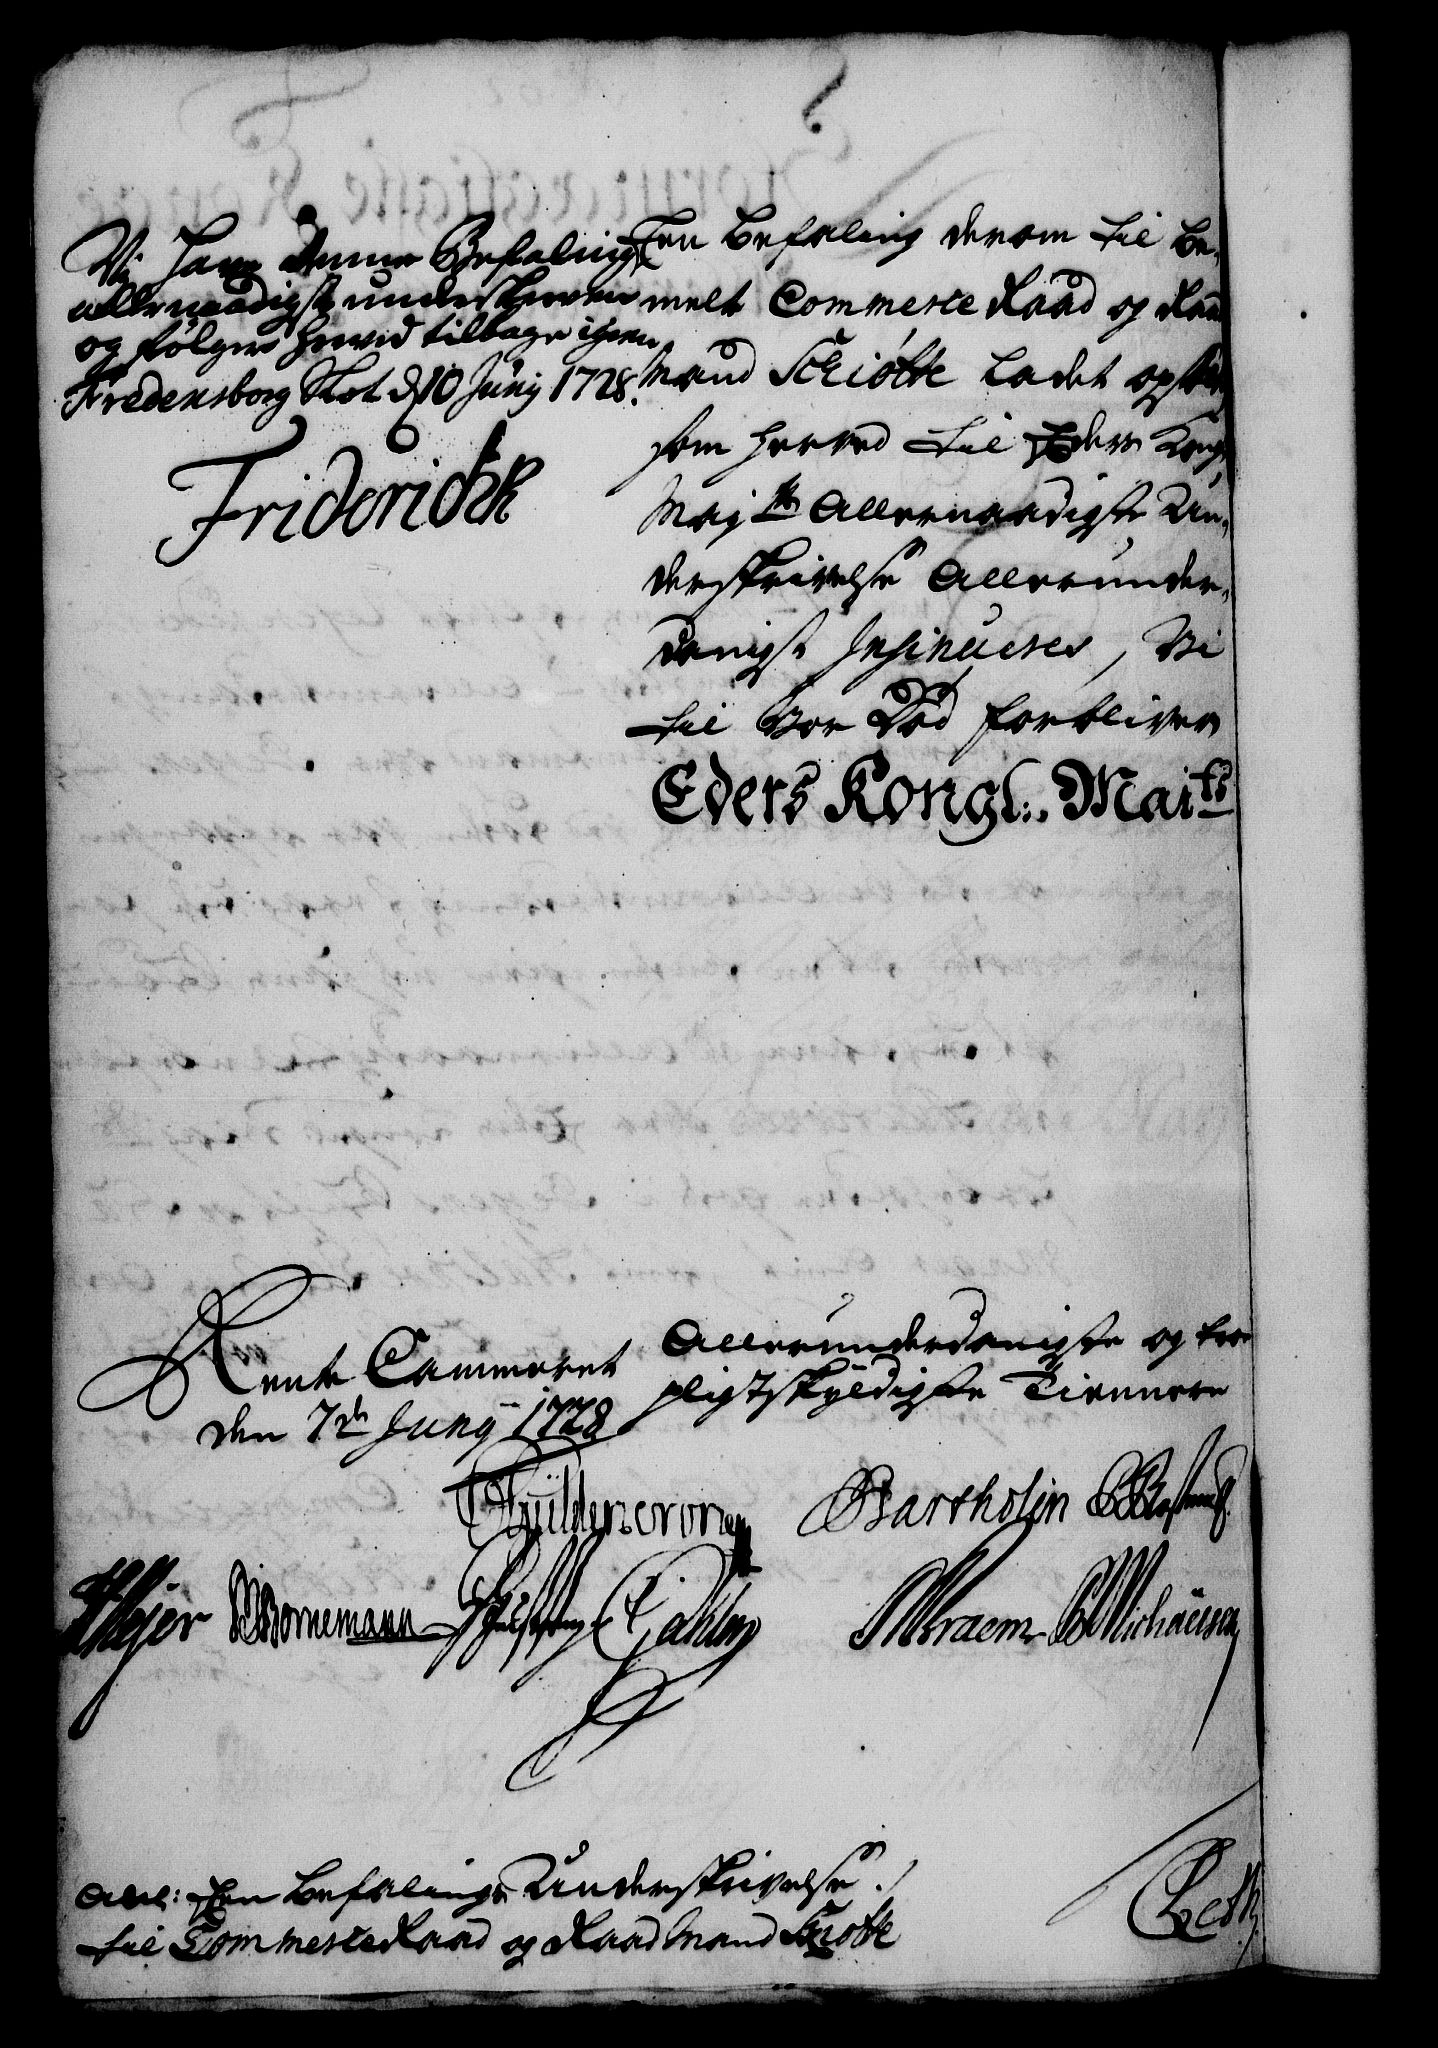 Vi have denne Befaling
allernaadigst underskreven
og følger herved tilbage igien
Fredensborg Slot d 10 Junij 1728.
Friderich R
En Befaling derom til be-
melt Commerce Raad og Raad
Mand Schiøtte ladet opsætte
som herved til Eders Kongl
Maj ts Allernaadigste Un-
derskrivelse Allerunder-
danigst Insinueres, Vi
til vor Død forbliver
Eders Kongl: Mai ts
Rente Cammeret
den 7de Junij 1728
Allerunderdanigste og troe
pligtskyldigste Tienere
Güldencrone
Bartholin
Meyer Bornemann
Michäelsen
All: En Befalings Underskrivelse
til Commerce Raad og Raad Mand Schiøtte